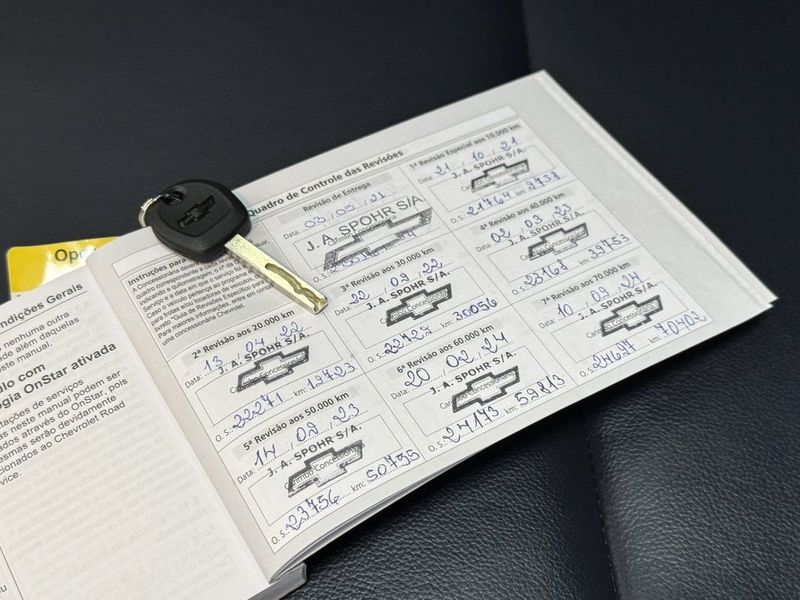 Ope
ndições Gerais
nenhuma outra
ade além daquelas
este manual.
ulo com
ogia OnStar ativada
tações de serviços
as neste manual podem ser
ados através do OnStar, pois
esmas serão devidamente
cionados ao Chevrolet Road
vice.
Quadro de Controle das Revisões
Instruções para
A Concessionária deverá
quadro correspondente a cada
indicando a quilometragem, o nº da
Serviço e a data em que o serviço
o veículo pertença ao programa
para frotas e/ou locadoras de veículos
livreto "Guia de Revisões Específico para
Para maiores informações, entre em
uma concessionária Chevrolet.
Revisão de Entrega
Data: 03/05/21
J. A. SPOHR S/A
1ª Revisão Especial aos 10.000 km
Data: 21/10/21
J. A. SPOHR S/A.
O.S.: 21764 km: 9738
2ª Revisão aos 20.000 km
Data: 13/04/22
J. A. SPOHR S/A.
O.S.: 22271 km: 19723
3ª Revisão aos 30.000 km
Data: 22/09/22
J. A. SPOHR S/A.
O.S.: 22727 km: 30056
4ª Revisão aos 40.000 km
Data: 02/03/23
J. A. SPOHR S/A.
O.S.: 23168 km: 39753
5ª Revisão aos 50.000 km
Data: 14/09/23
J. A. SPOHR S/A.
Carimbo Concessionária
O.S.: 23756 km: 50755
6ª Revisão aos 60.000 km
Data: 20/02/24
J. A. SPOHR S/A.
Carimbo Concessionária
O.S.: 24173 km: 59813
7ª Revisão aos 70.000 km
Data: 10/09/24
J. A. SPOHR S/A.
Carimbo Concessionária
O.S.: 24627 km: 70402